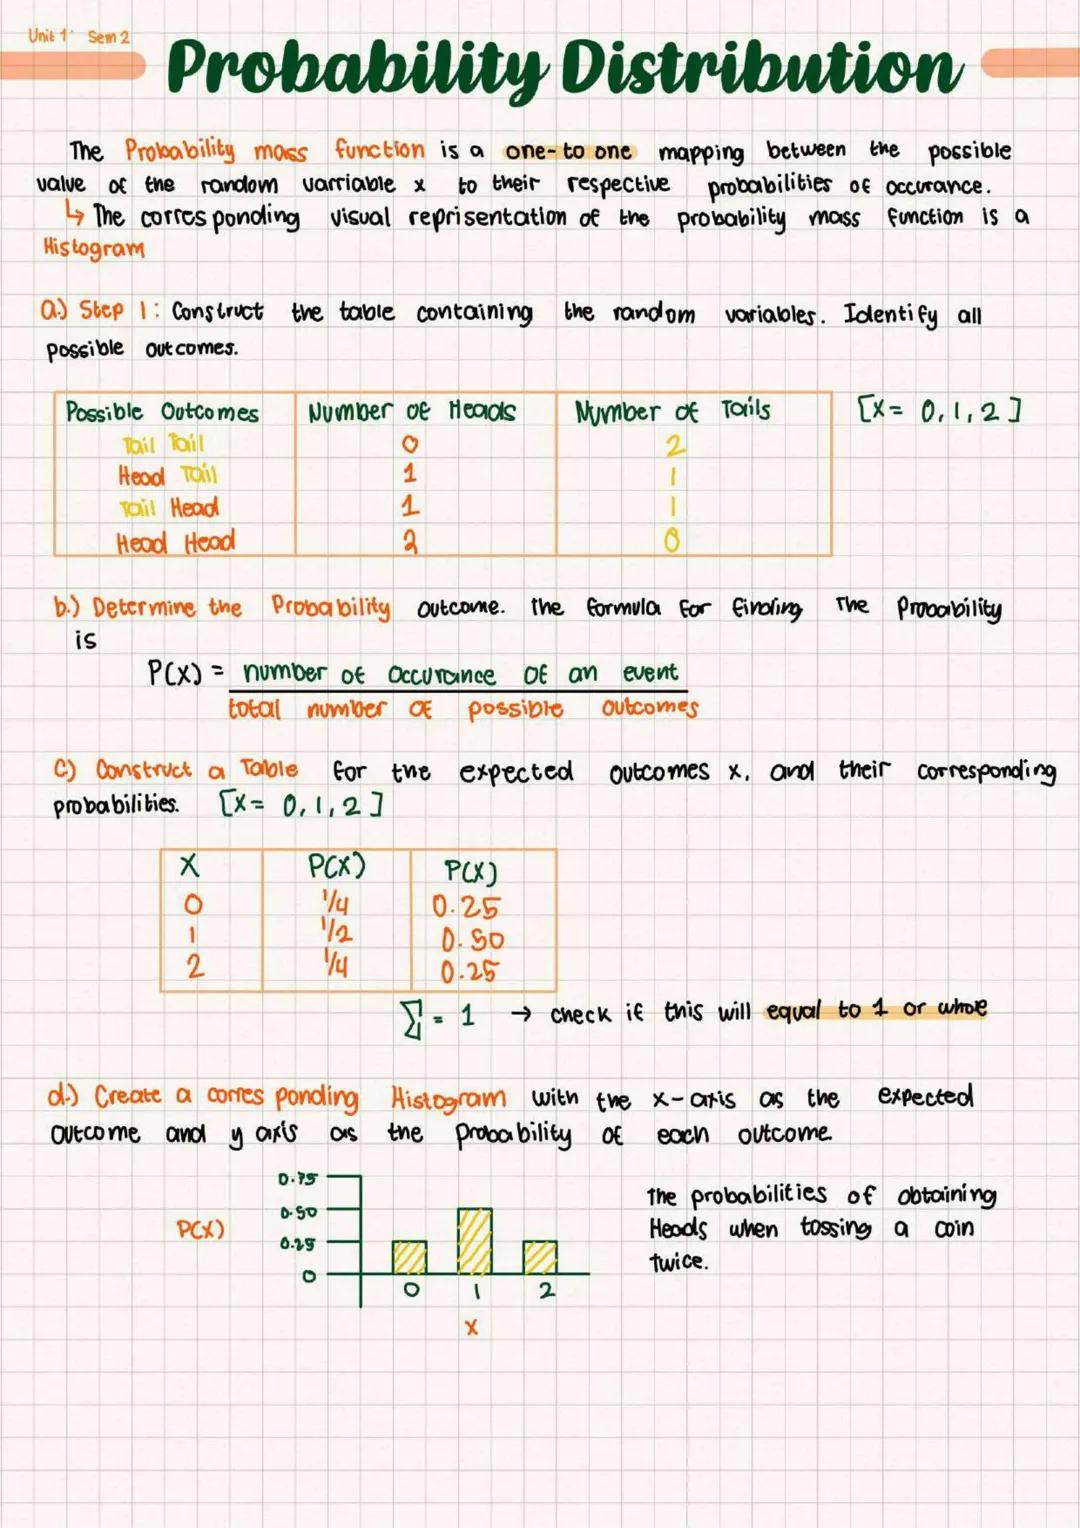 Unit 1 Sem 2
Probability Distribution
The Probability mass function is a one-to one mapping between the possible
value of the random varriable x to their respective probabilities of occurance.
↳ The corresponding visual reprisentation of the probability mass function is a
Histogram
a.) Step 1: Construct the table containing the random variables. Identify all
possible outcomes.
Possible Outcomes Number of Heads Number of Tails [X= 0,1,2]
Tail Tail 0 2
Head Tail 1 1
Tail Head 1 1
Head Head 2 0
b.) Determine the Probability outcome. the formula for finding The Probability
is
P(X) = number of occurance of an event
total number of possible outcomes
C) Construct a Table for the expected outcomes x, and their corresponding
probabilities. [X= 0,1,2]
X P(X) P(X)
0 1/4 0.25
1 1/2 0.50
2 1/4 0.25
∑ = 1 → check if this will equal to 1 or whole
d.) Create a corresponding Histogram with the x-axis as the expected
outcome and y axis as the probability of each outcome.
0.75
0.50
0.25
0
P(X)
0 1 2
X
the probabilities of obtaining
Heads when tossing a coin
twice.